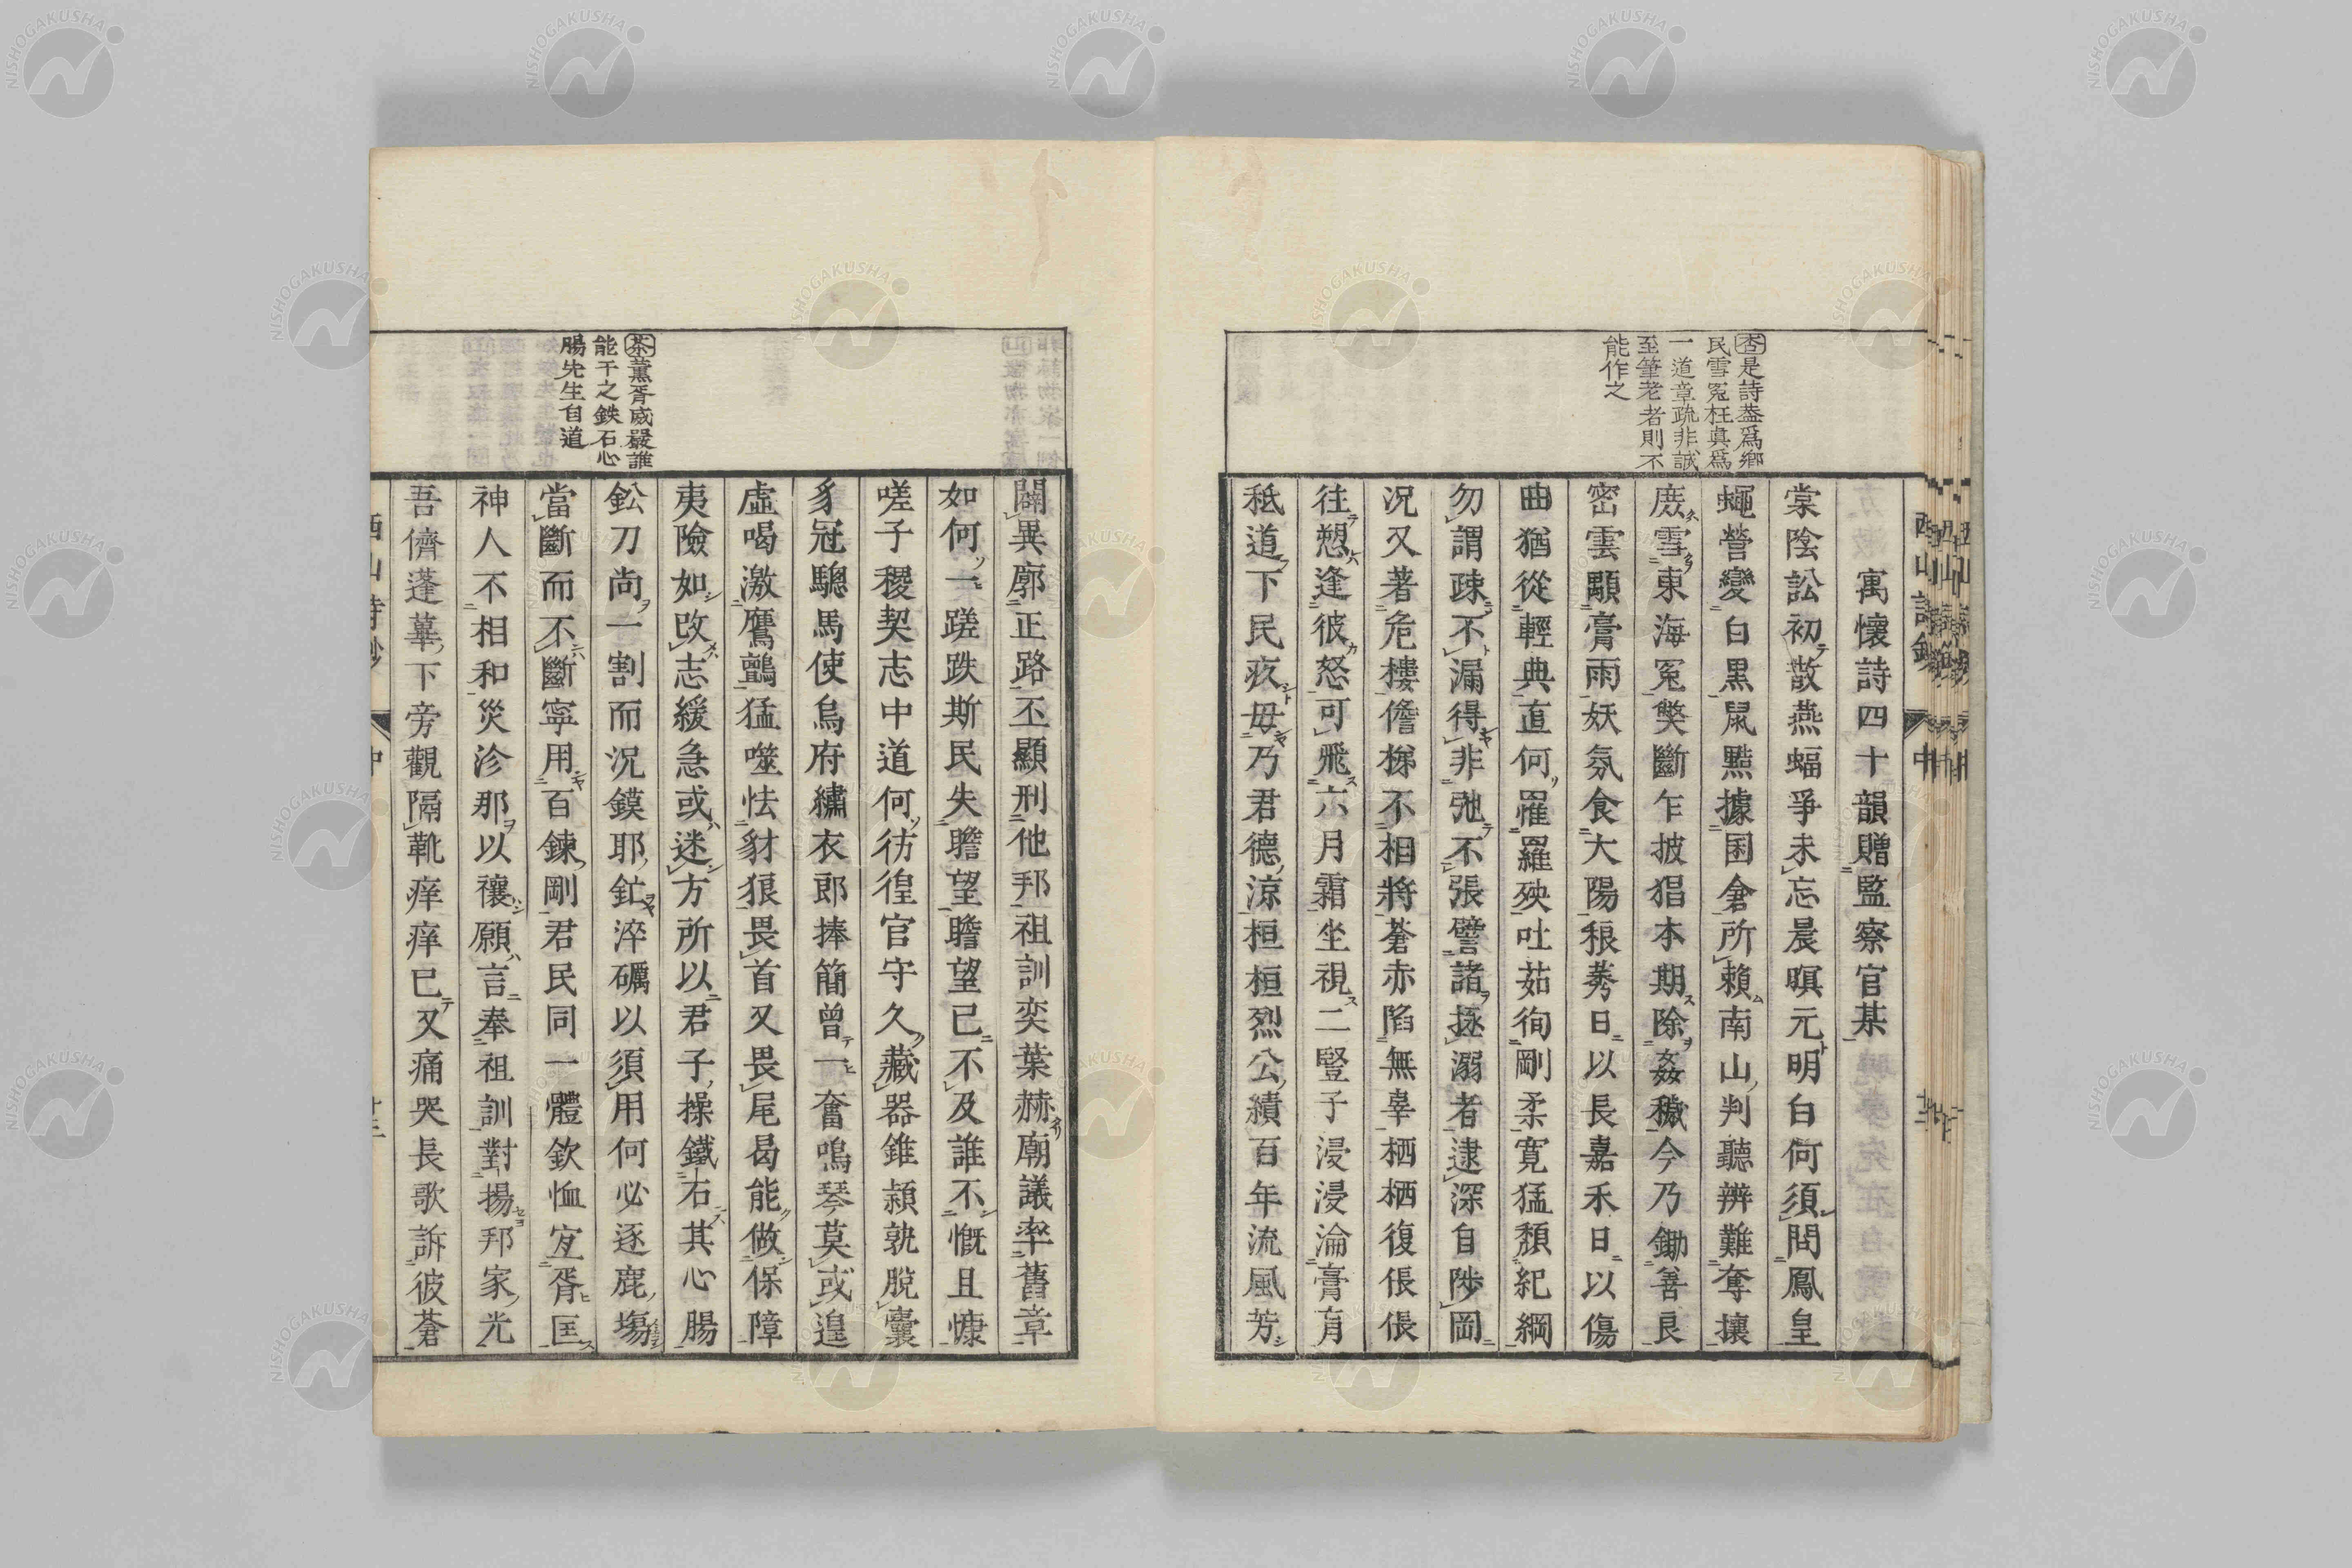 杏是詩葢爲鄉
民雪冤枉眞爲
一道章疏非誠
至筆老者則不
能作之
寓懷詩四十韻贈監察官某
棠陰訟初散燕蝠爭未忘晨暝元明白何須問鳳皇
蠅營變白黒鼠黠據囷倉所賴南山判聽辨難奪攘
庶雪東海冤獘斷乍披猖本期除姦穢今乃鋤善良
密雲顒膏雨妖氛食大陽稂莠日以長嘉禾日以傷
曲猶從輕典直何罹羅殃吐茹徇剛柔寛猛頽紀綱
勿謂疎不漏得非弛不張譬諸拯溺者逮深自陟岡
況又著危樓儋梯不相將蒼赤陷無辜栖栖復倀倀
往愬逢彼怒可飛六月霜坐視二豎子浸浸淪膏肓
秪道下民疚毋乃君德涼桓桓烈公績百年流風芳
西山詩鈔 中
茶薫胥威嚴誰
能干之鉄石心
腸先生自道
闢異廓正路丕顯刑他邦祖訓奕葉赫廟議率舊章
如何一蹉跌斯民失瞻望瞻望已不及誰不慨且慷
嗟子稷契志中道何彷徨官守久藏器錐潁孰脫囊
豸冠驄馬使烏府繡衣郎捧簡曾一奮鳴琴莫或遑
虛喝激鷹鸇猛噬怯豺狼畏首又畏尾曷能做保障
夷險如改志緩急或迷方所以君子操鐵石其心腸
鈆刀尚一割而況鏌耶鋩淬礪以須用何必逐鹿塲
當斷而不斷寧用百鍊剛君民同一體欽恤宐胥匡
神人不相和災沴那以禳願言奉祖訓對揚邦家光
吾儕蓬蓽下旁觀隔靴痒痒已又痛哭長歌訴彼蒼
西山詩鈔 中 十三